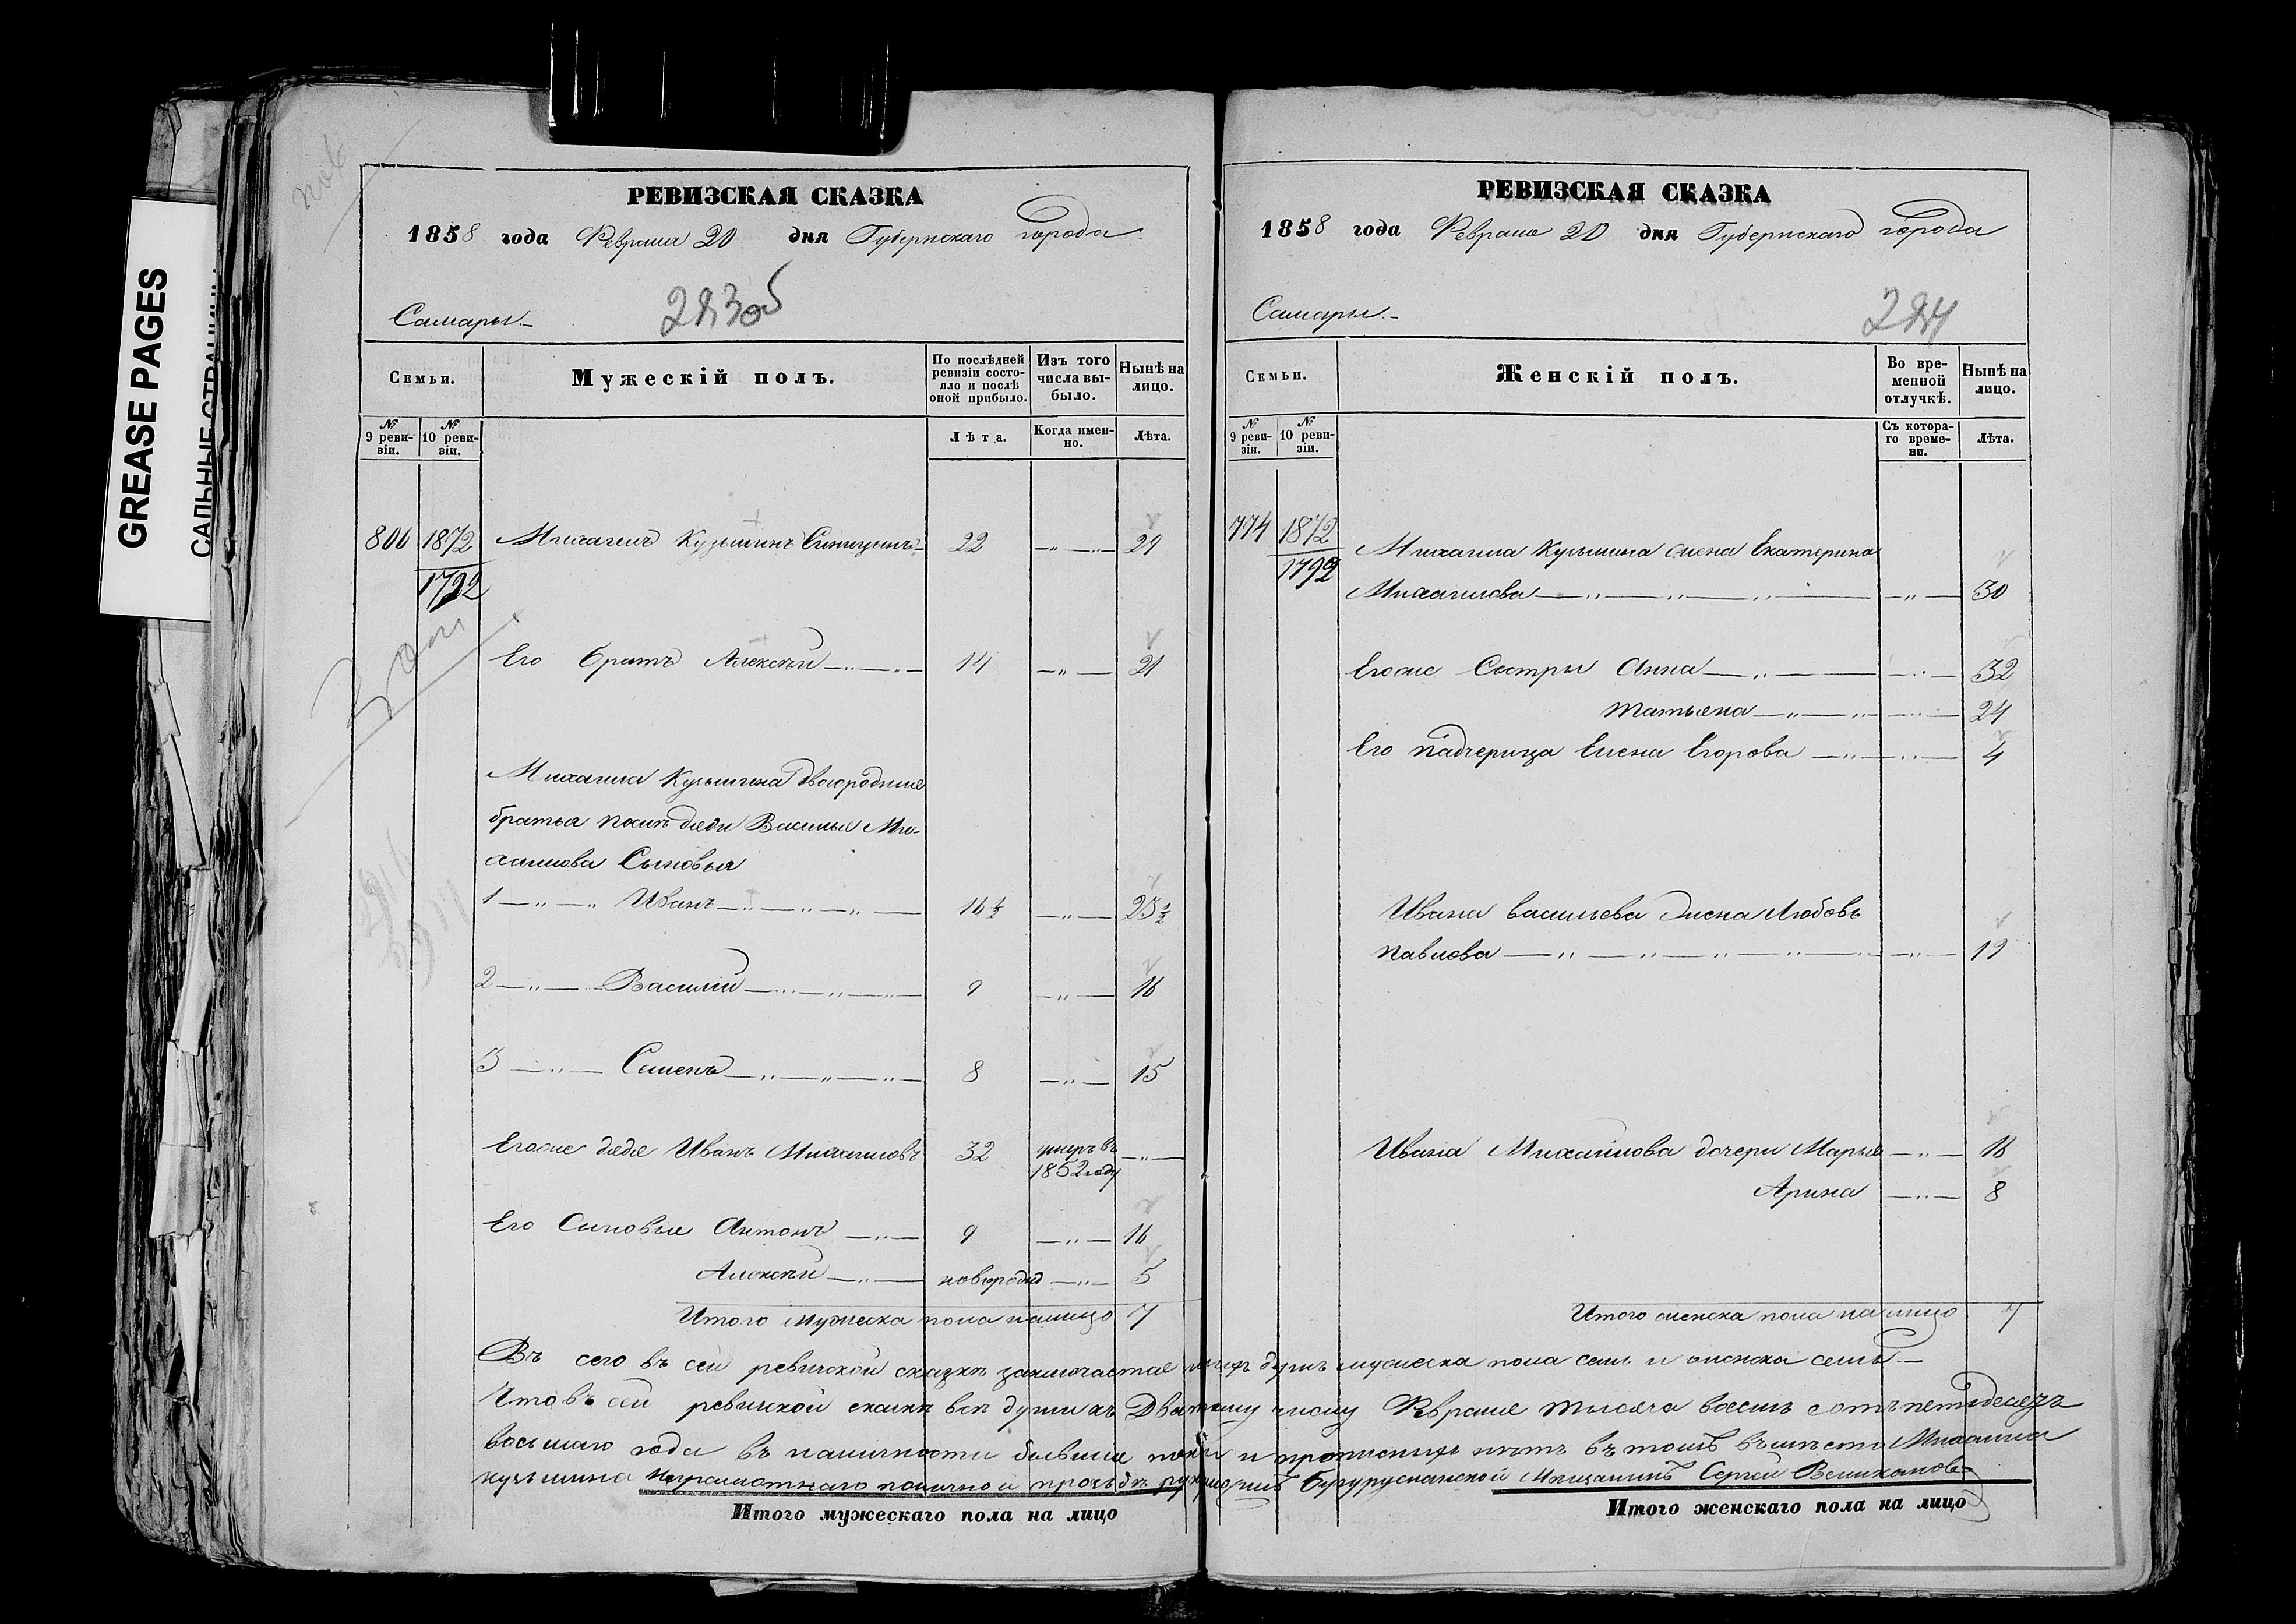 GREASE PAGES
САЛЬНЫЕ СТРАНИЦЫ
РЕВИЗСКАЯ СКАЗКА
1858 года Февраля 20 дня Губернскаго города
Самары.
Семьи.
Мужескій полъ.
По послѣдней ревизіи состояло и послѣ оной прибыло.
Изъ того числа выбыло.
Нынѣ на лицо.
№ 9 ревизіи.
№ 10 ревизіи.
Лѣта.
Когда именно.
Лѣта.
806 1872 Михаилъ Кузьминъ Синицынъ 22 — " — 29
1792
Его братъ Алексѣй — " — 14 — " — 21
Михаила Кузьмина двоюродные
братья
дяди Василья Ми-
хайлова Сыновья
1 — " — Иванъ — " — " — 16½ — " — 23½
2 — " — Василий — " — " — 9 — " — 16
3 — " — Семенъ — " — " — " — 8 — " — 15
Егоже дядя Иванъ Михайловъ 32 умеръ въ 1852 году — " —
Его Сыновья Антонъ — " — 9 — " — 16
Алексѣй — " — новорожд — " — 5
Итого мужеска пола налицо 7
РЕВИЗСКАЯ СКАЗКА
1858 года Февраля 20 дня Губернскаго города
Самары.
Семьи.
Женскій полъ.
Во временной отлучкѣ.
Нынѣ на лицо.
№ 9 ревизіи.
№ 10 ревизіи.
Съ котораго времени.
Лѣта.
774 1872 Михаила Кузьмина жена Екатерина
1792 Михайлова — " — " — " — — " — 30
Егоже Сестры Анна — " — — " — 32
Татьяна — " — " — " — 24
Его падчерица Елена Егорова — " — " — 4
Ивана Васильева жена Любовь
Павлова — " — " — " — " — " — 19
Ивана Михайлова дочери Марья — " — 16
Арина — " — 8
Итого женска пола налицо 7
Въ сего въ сей ревизской сказкѣ заключается душъ мужеска пола семь и женска семь.
Что въ сей ревизской сказкѣ всѣ души къ Двадцатому числу Февраля тысяча восемь сотъ пятьдесятъ
восьмаго года въ наличности бывшие и прописныхъ нѣтъ въ томъ вмѣсто Михаила
Кузьмина неграмотнаго по личной прозьбѣ Бугурусланской Мѣщанинъ Сергей Великановъ
Итого мужескаго пола на лицо
Итого женскаго пола на лицо